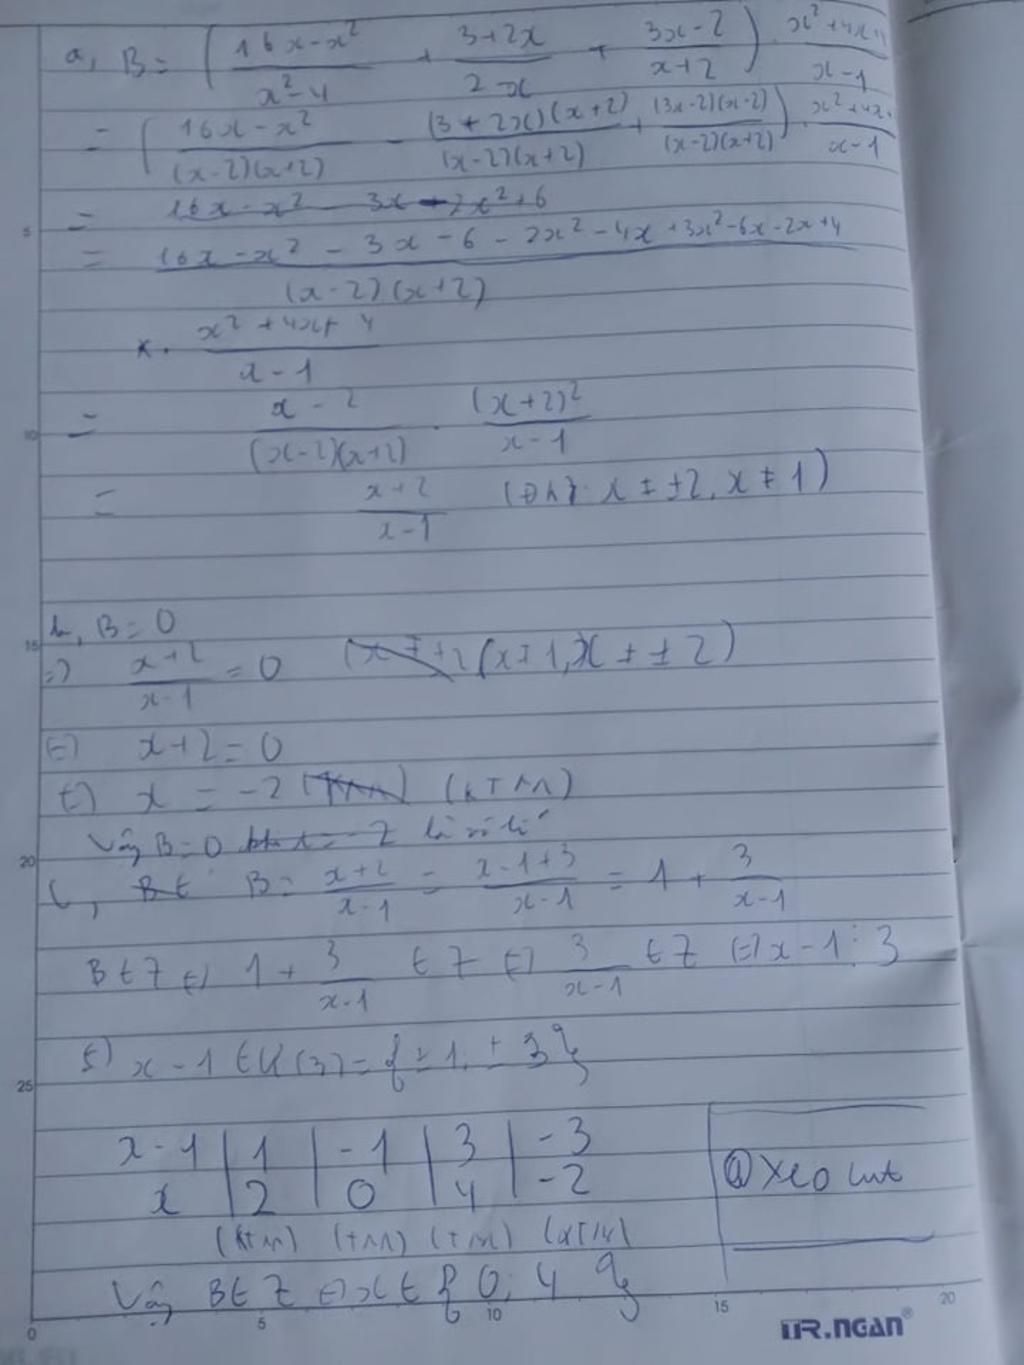 a, B = ( 16x-x² / x²-4 + 3+2x / 2-x + 3x-2 / x+2 ) . x²+4x+4 / x-1
= ( 16x-x² / (x-2)(x+2) - (3+2x)(x+2) / (x-2)(x+2) + (3x-2)(x-2) / (x-2)(x+2) ) . x²+4x+ / x-1
= 16x-x² - 3x - 2x²+6
= 16x-x² - 3x - 6 - 2x² - 4x + 3x² - 6x - 2x + 4 / (x-2)(x+2)
x . x²+4x+4 / x-1
= x-2 / (x-2)(x+2) . (x+2)² / x-1
= x+2 / x-1 (ĐK: x ≠ ±2, x ≠ 1)
b, B = 0
=> x+2 / x-1 = 0 (x ≠ 1, x ≠ ±2)
<=> x+2 = 0
<=> x = -2 (KTM)
Vậy B = 0 là vô lí
c, B = x+2 / x-1 = x-1+3 / x-1 = 1 + 3 / x-1
B ∈ Z <=> 1 + 3 / x-1 ∈ Z <=> 3 / x-1 ∈ Z <=> x-1 ⋮ 3
<=> x-1 ∈ Ư(3) = {±1, ±3}
x-1 | 1 | -1 | 3 | -3
x | 2 | 0 | 4 | -2
(KTM) (TM) (TM) (KTM)
@Xeo cut
Vậy B ∈ Z <=> x ∈ {0; 4}
5 10 15 20 25
0 5 10 15 20
TR.NGAN®